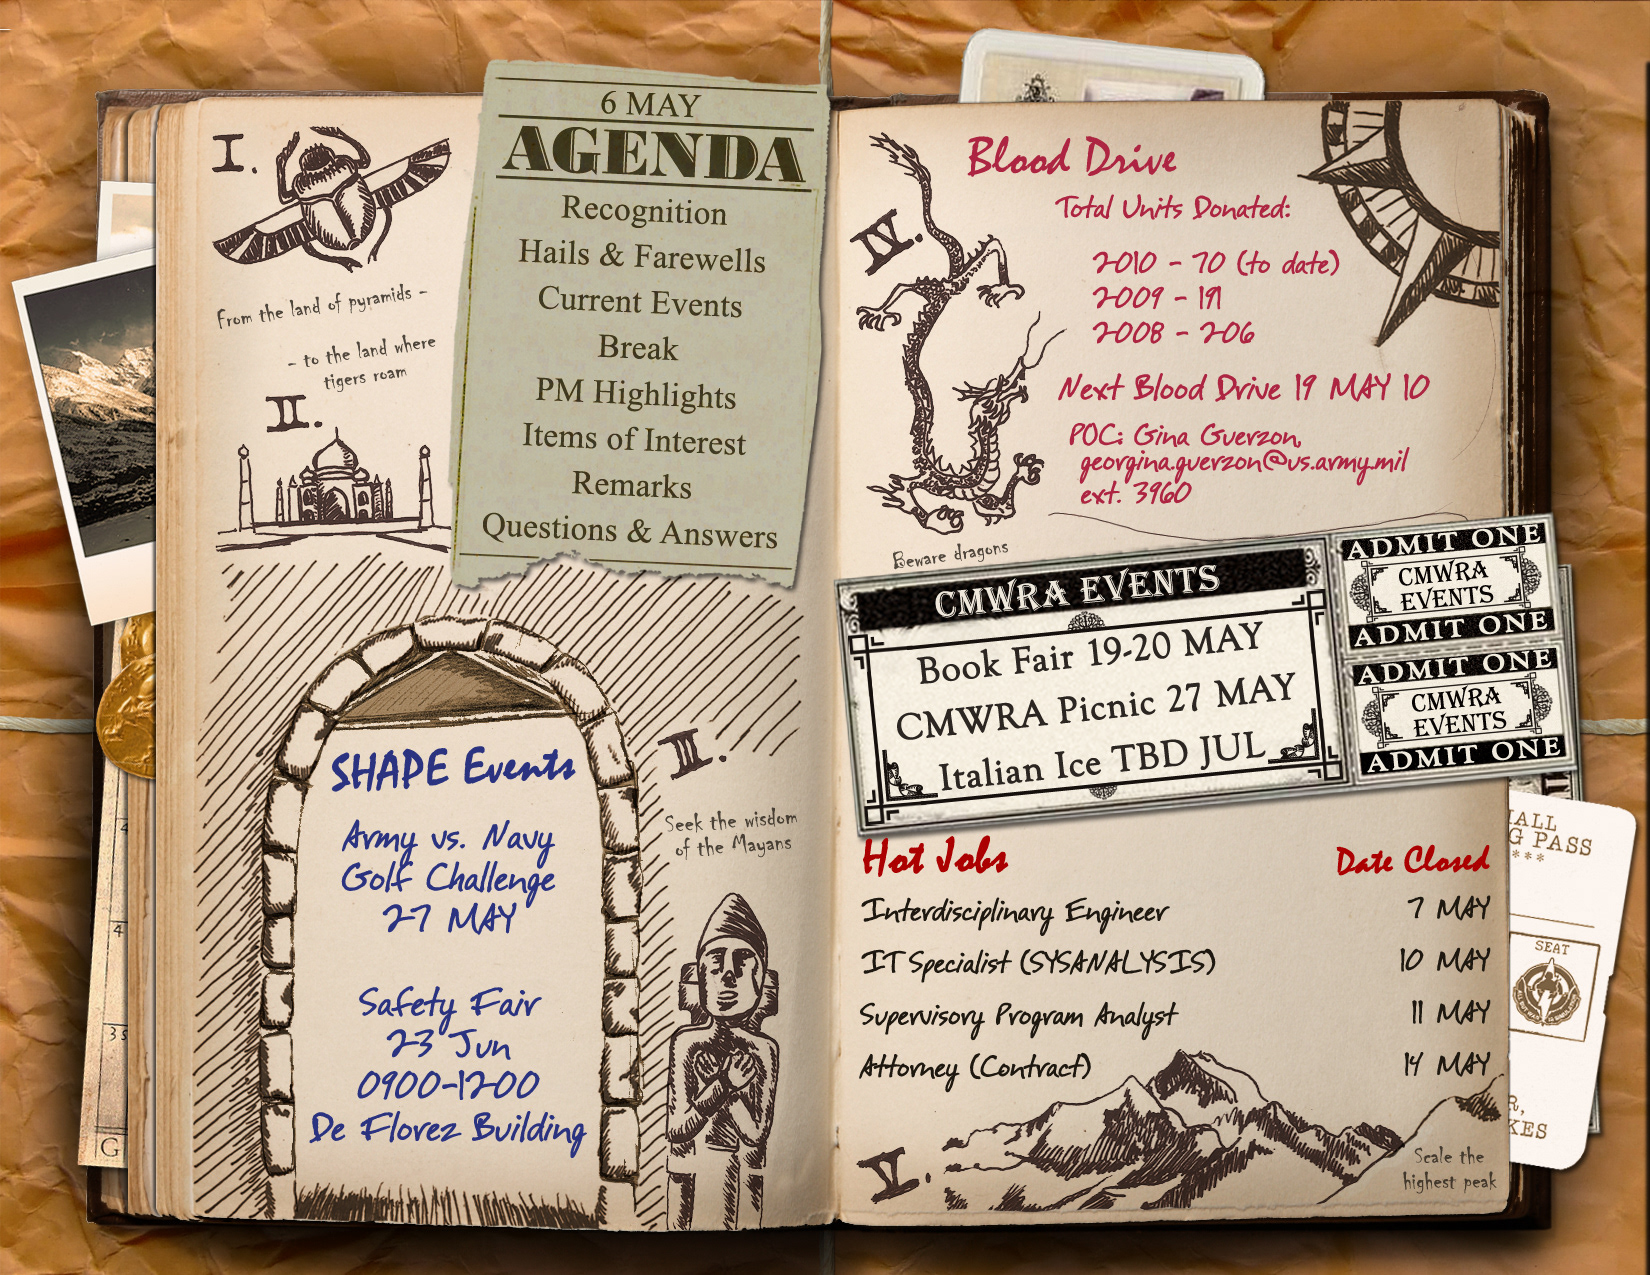 I.
From the land of pyramids -
- to the land where
tigers roam
II.
6 MAY
AGENDA
Recognition
Hails & Farewells
Current Events
Break
PM Highlights
Items of Interest
Remarks
Questions & Answers
SHAPE Events
Army vs. Navy
Golf Challenge
27 MAY
Safety Fair
23 Jun
0900-1200
De Florez Building
III.
Seek the wisdom
of the Mayans
IV.
Beware dragons
Blood Drive
Total Units Donated:
2010 - 70 (to date)
2009 - 191
2008 - 206
Next Blood Drive 19 MAY 10
POC: Gina Guerzon,
georgina.guerzon@us.army.mil
ext. 3960
CMWRA EVENTS
Book Fair 19-20 MAY
CMWRA Picnic 27 MAY
Italian Ice TBD JUL
ADMIT ONE
CMWRA
EVENTS
ADMIT ONE
ADMIT ONE
CMWRA
EVENTS
ADMIT ONE
Hot Jobs Date Closed
Interdisciplinary Engineer 7 MAY
IT Specialist (SYSANALYSIS) 10 MAY
Supervisory Program Analyst 11 MAY
Attorney (Contract) 14 MAY
V.
Scale the
highest peak
PASS
***
SEAT
G